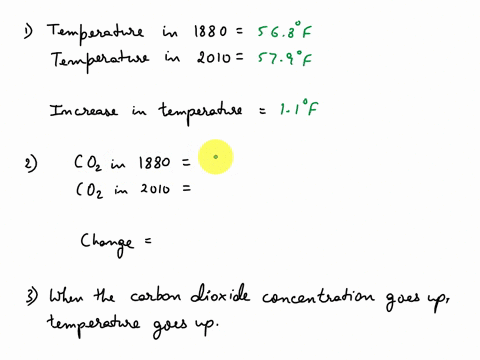 1) Temperature in 1880 = 56.8°F
Temperature in 2010 = 57.9°F
Increase in temperature = 1.1°F
2) CO₂ in 1880 =
CO₂ in 2010 =
Change =
3) When the carbon dioxide concentration goes up,
temperature goes up.